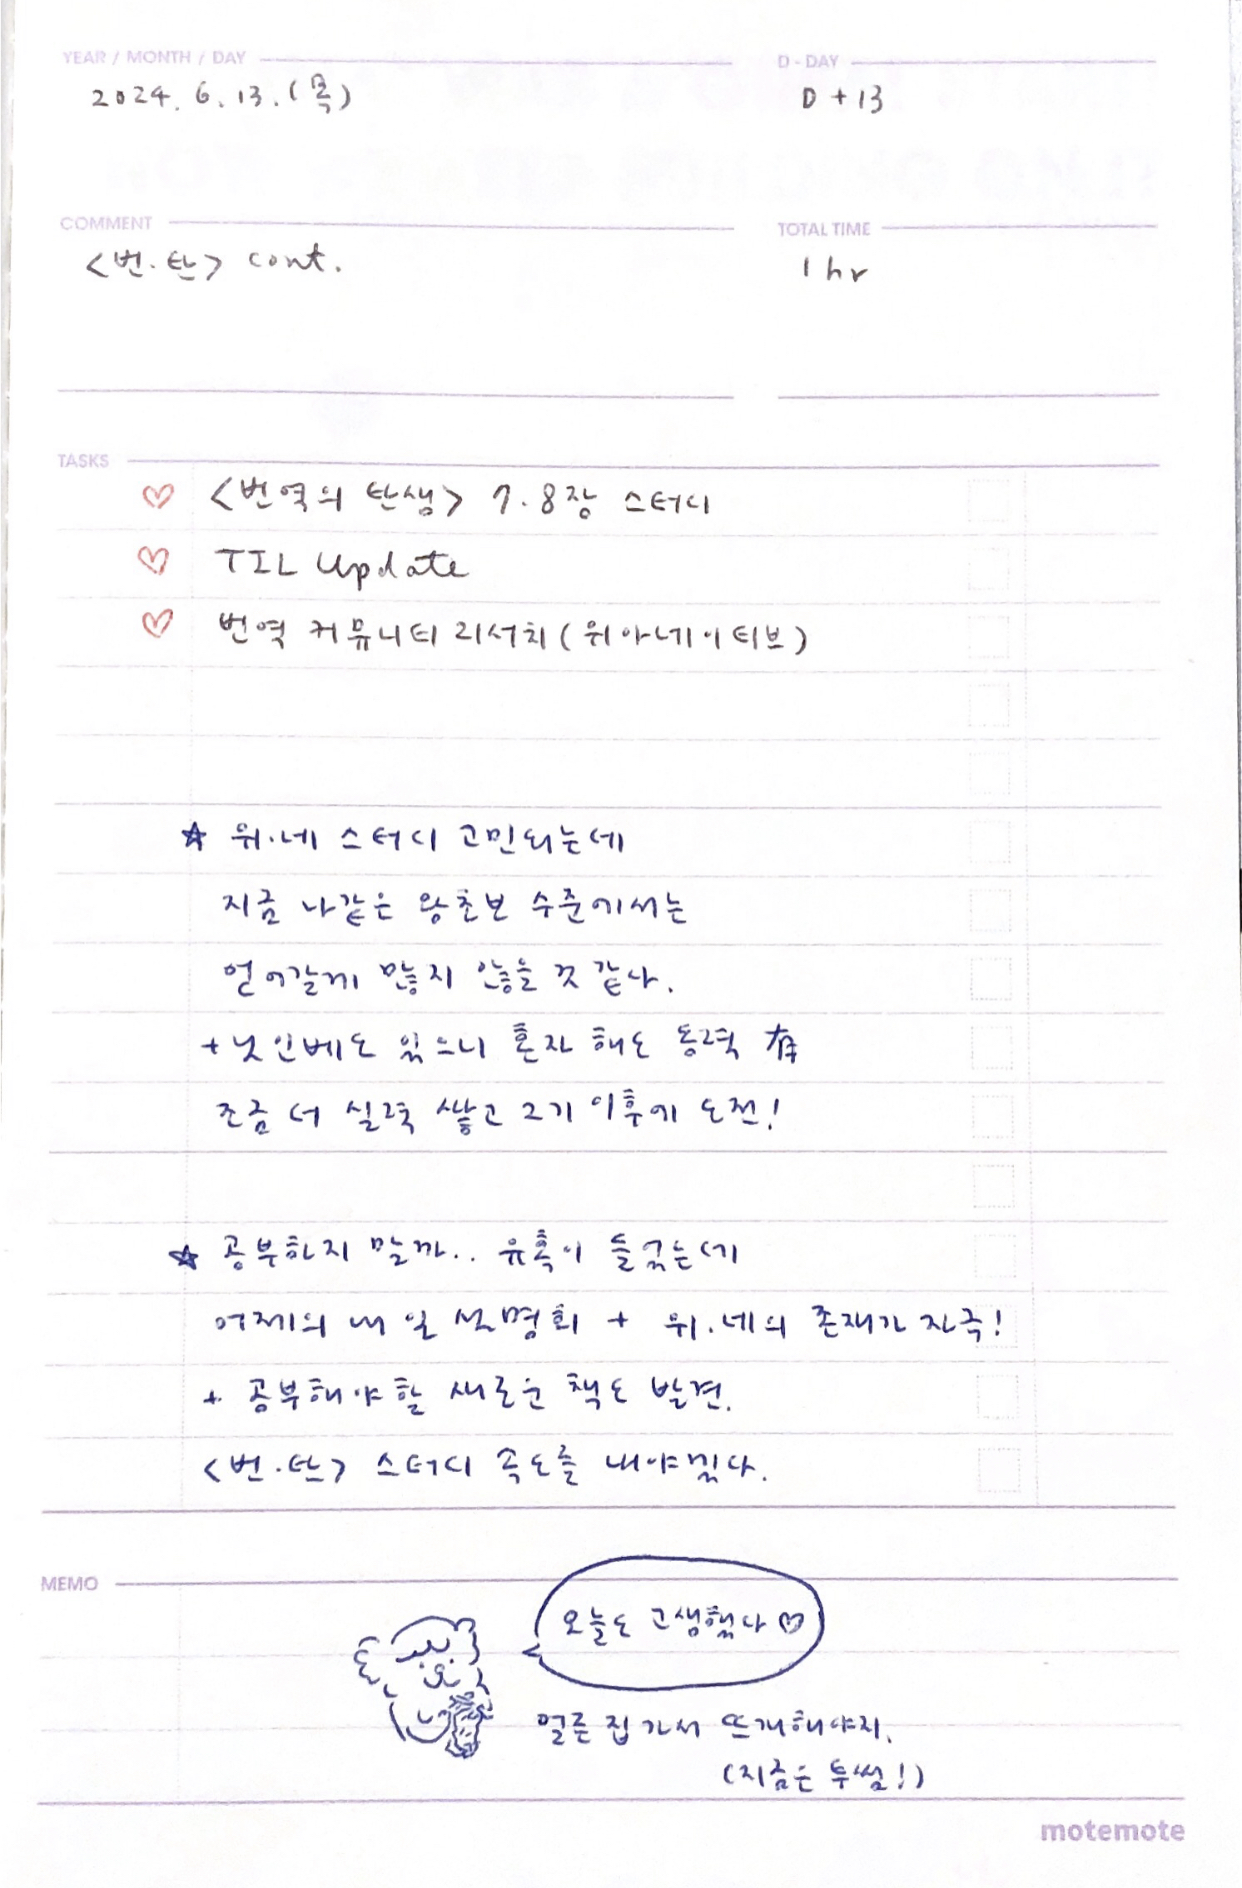 YEAR / MONTH / DAY
D - DAY
2024. 6. 13. (목)
D + 13
COMMENT
TOTAL TIME
<번.탄> cont.
1 hr
TASKS
♡ <번역의 탄생> 7.8장 스터디
♡ TIL Update
♡ 번역 커뮤니티 리서치 (위아네이티브)
☆ 위.네 스터디 고민되는데
지금 나같은 왕초보 수준에서는
얻어갈게 많지 않을 것 같다.
+ 낫인베도 있으니 혼자 해도 동력 有
조금 더 실력 쌓고 2기 이후에 도전!
☆ 공부하지 말까.. 유혹이 들긋는데
어제의 내일 설명회 + 위.네의 존재가 자극!
+ 공부해야할 새로운 책도 발견.
<번.탄> 스터디 속도를 내야겠다.
MEMO
오늘도 고생했다 ♡
얼른 집 가서 뜨개해야지.
(지금은 투썸!)
motemote